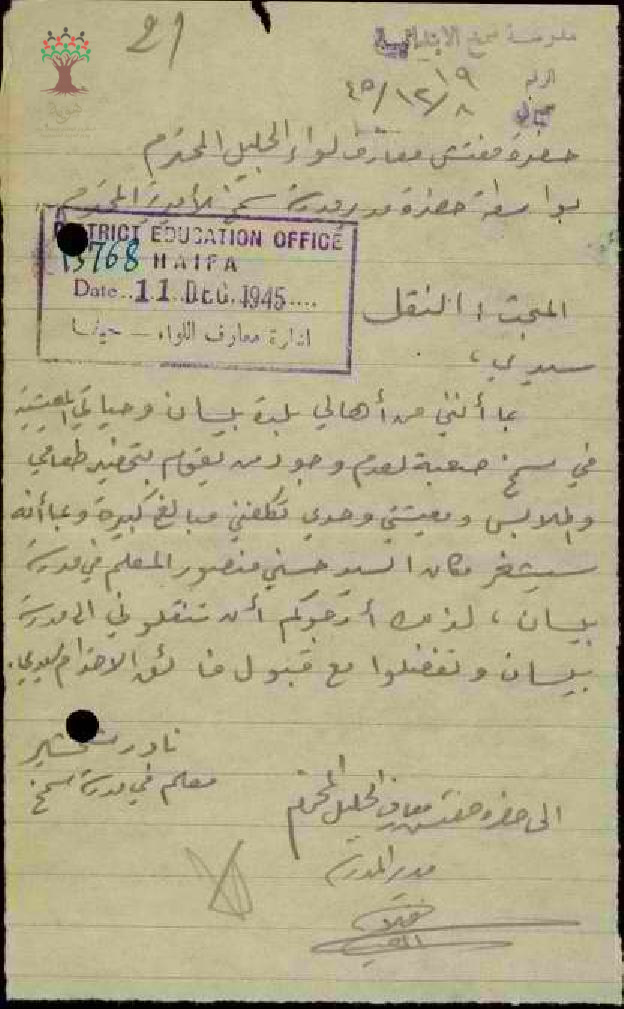 21
مدرسة سمخ الابتدائية
الرقم ١٩
٤٥/١٢/٨
حضرة مفتش معارف لواء الجليل المحترم
بواسطة حضرة مدير مدرسة سمخ الأميرية المحترم
DISTRICT EDUCATION OFFICE
13768 HAIFA
Date 11 DEC 1945
ادارة معارف اللواء — حيفا
المبحث : النقل
سيدي ،
بما أنني من أهالي بلدة بيسان وحياتي المعيشية
في سمخ صعبة لعدم وجود من يقوم بتحضير طعامي
والملابس ومعيشتي وحدي تكلفني مبالغ كبيرة وبما أنه
سيشغر مكان السيد حسني منصور المعلم في مدرسة
بيسان ، لذلك أرجوكم أن تنقلوني الى مدرسة
بيسان وتفضلوا مع قبول فائق الاحترام سيدي .
نادر
معلم في مدرسة سمخ
الى حضرة مفتش معارف الجليل المحترم
مدير المدرسة